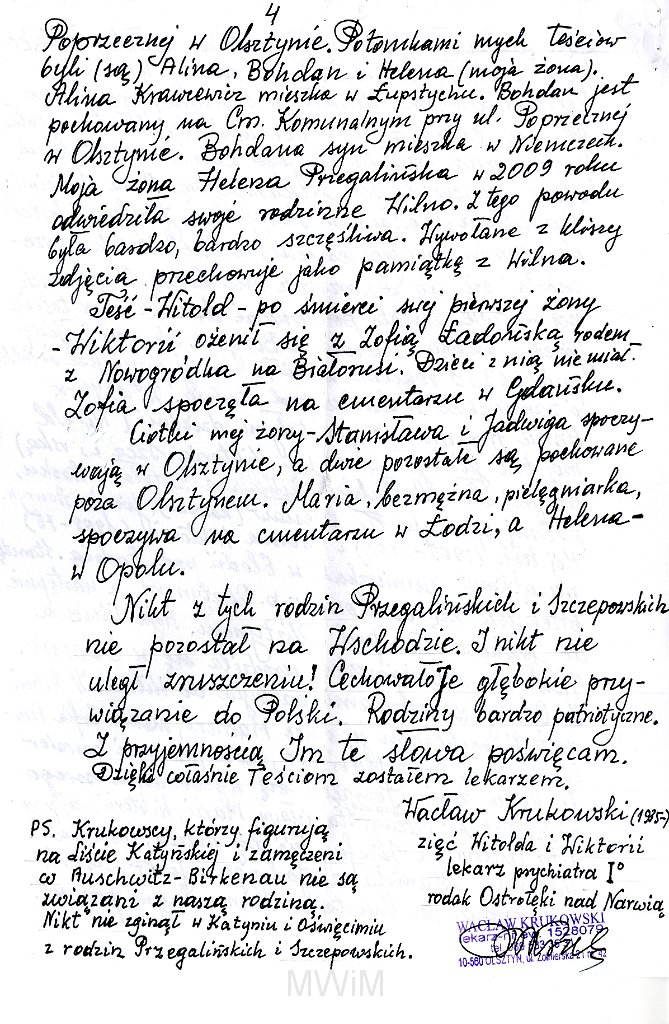 4
Poprzecznej w Olsztynie. Potomkami mych teściów
byli (są) Alina, Bohdan i Helena (moja żona).
Alina Krawcewicz mieszka w Łupstychu. Bohdan jest
pochowany na Cm. Komunalnym przy ul. Poprzecznej
w Olsztynie. Bohdana syn mieszka w Niemczech.
Moja żona Helena Przegalińska w 2009 roku
odwiedziła swoje rodzinne Wilno. Z tego powodu
była bardzo, bardzo szczęśliwa. Wywołane z kliszy
zdjęcia przechowuje jako pamiątkę z Wilna.
Teść - Witold - po śmierci swej pierwszej żony
- Wiktorii ożenił się z Zofią Ładońską rodem
z Nowogródka na Białorusi. Dzieci z nią nie miał.
Zofia spoczęła na cmentarzu w Gdańsku.
Ciotki mej żony - Stanisława i Jadwiga spoczy-
wają w Olsztynie, a dwie pozostałe są pochowane
poza Olsztynem. Maria, bezmężna, pielęgniarka,
spoczywa na cmentarzu w Łodzi, a Helena -
w Opolu.
Nikt z tych rodzin Przegalińskich i Szczepowskich
nie pozostał na Wschodzie. I nikt nie
uległ zruszczeniu! Cechowało Je głębokie przy-
wiązanie do Polski. Rodziny bardzo patriotyczne.
Z przyjemnością Im te słowa poświęcam.
Dzięki właśnie Teściom zostałem lekarzem.
Wacław Krukowski (1925-)
zięć Witolda i Wiktorii
lekarz psychiatra I°
rodak Ostrołęki nad Narwią
PS. Krukowscy, którzy figurują
na Liście Katyńskiej i zamęczeni
w Auschwitz-Birkenau nie są
związani z naszą rodziną.
Nikt nie zginął w Katyniu i Oświęcimiu
z rodzin Przegalińskich i Szczepowskich.
WACŁAW KRUKOWSKI
lekarz 1528079
10-560 OLSZTYN, ul. Żołnierska
MWiM